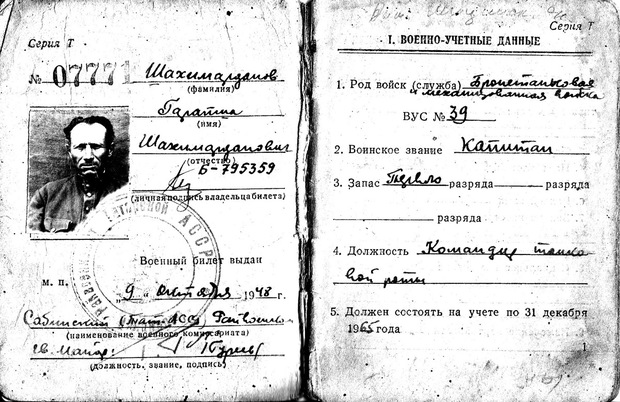 Серия Т
№ 07771 Шахимарданов
(фамилия)
Гарапша
(имя)
Шахимарданович
(отчество)
Б-795359
(личная подпись владельца билета)
Татарской АССР
Военный билет выдан
м. п. „9" октября 1948 г.
Сабинский Тат АССР Райвоенкомат
(наименование военного комиссариата)
гв. майор:
(должность, звание, подпись)
Серия Т
I. ВОЕННО-УЧЕТНЫЕ ДАННЫЕ
1. Род войск (служба) Бронетанковая
и механизированная войска
ВУС № 39
2. Воинское звание Капитан
3. Запас Первого разряда разряда
разряда
4. Должность Командир танко
вой роты
5. Должен состоять на учете по 31 декабря
1965 года
1